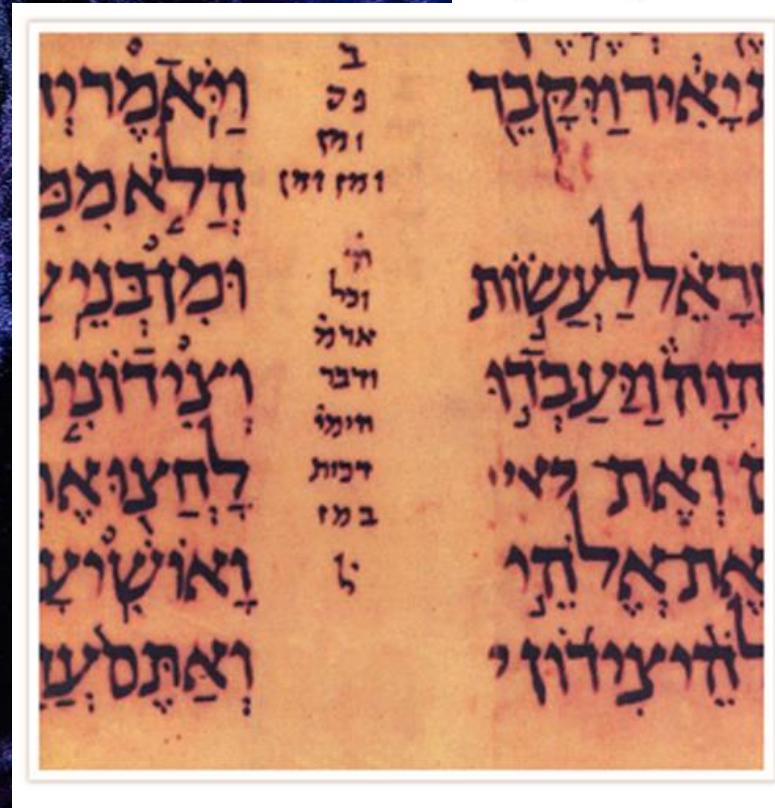 יָאִיר וַיִּקָּבֵר
רָאֵל לַעֲשׂוֹת
הוָה וַיַּעַבְדוּ
וְאֶת־
אֶת־אֱלֹהֵי
להֵי צִידוֹן י
ב
ומן
ומן ומן
וכל
אדמ
ודבר
הימי
דכות
במז
ל
וַיֹּאמֶר יְ
הֲלֹא מִמִּ
וּמִן־בְּנֵי ע
וְצִידוֹנִים
לָחֲצוּ אֶ
וָאוֹשִׁיעָ
וְאַתֶּם עֲ